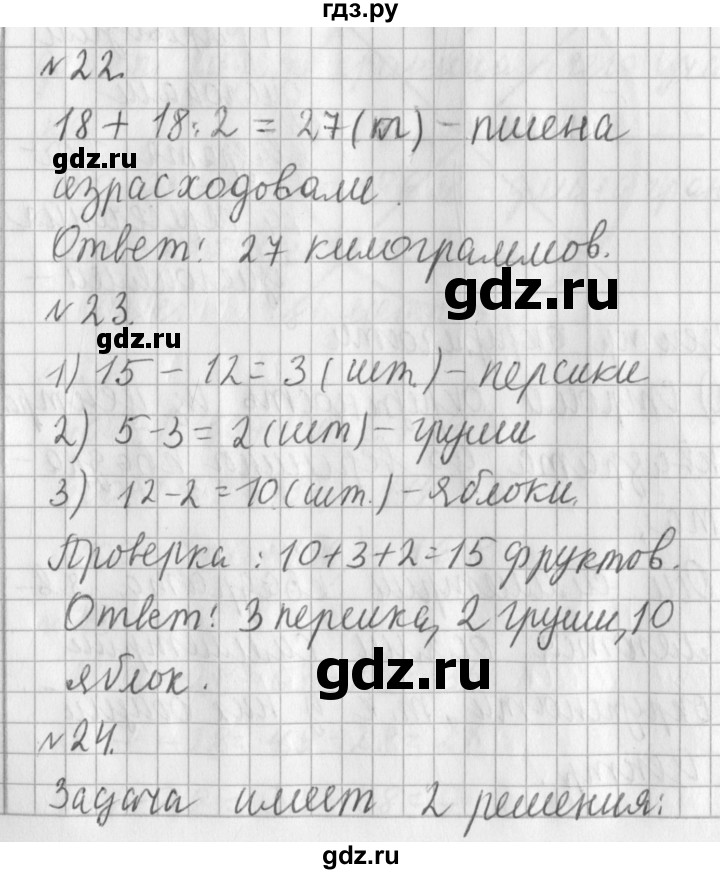 гдз.ру
№22.
18 + 18:2 = 27 (кг) – пшена
gdz.ru
израсходовали.
Ответ: 27 килограммов.
gdz.ru
№23.
gdz.ru
1) 15 – 12 = 3 (шт.) – персики
2) 5 – 3 = 2 (шт) – груши
3) 12 – 2 = 10 (шт.) – яблоки.
Проверка: 10 + 3 + 2 = 15 фруктов.
Ответ: 3 персика, 2 груши, 10
яблок.
gdz.ru
№24.
Задача имеет 2 решения:
gdz.ru